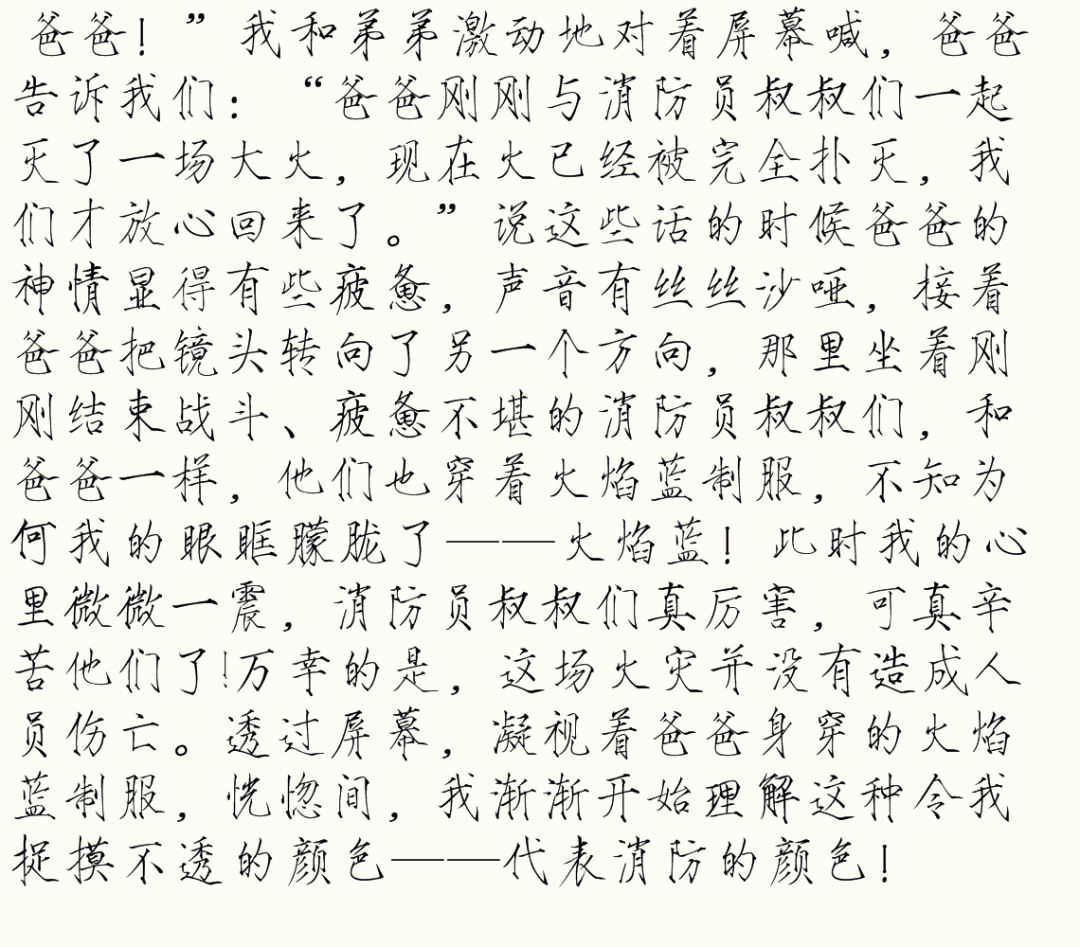 爸爸！”我和弟弟激动地对着屏幕喊，爸爸
告诉我们：“爸爸刚刚与消防员叔叔们一起
灭了一场大火，现在火已经被完全扑灭，我
们才放心回来了。”说这些话的时候爸爸的
神情显得有些疲惫，声音有丝丝沙哑，接着
爸爸把镜头转向了另一个方向，那里坐着刚
刚结束战斗、疲惫不堪的消防员叔叔们，和
爸爸一样，他们也穿着火焰蓝制服，不知为
何我的眼眶朦胧了——火焰蓝！此时我的心
里微微一震，消防员叔叔们真厉害，可真辛
苦他们了!万幸的是，这场火灾并没有造成人
员伤亡。透过屏幕，凝视着爸爸身穿的火焰
蓝制服，恍惚间，我渐渐开始理解这种令我
捉摸不透的颜色——代表消防的颜色！